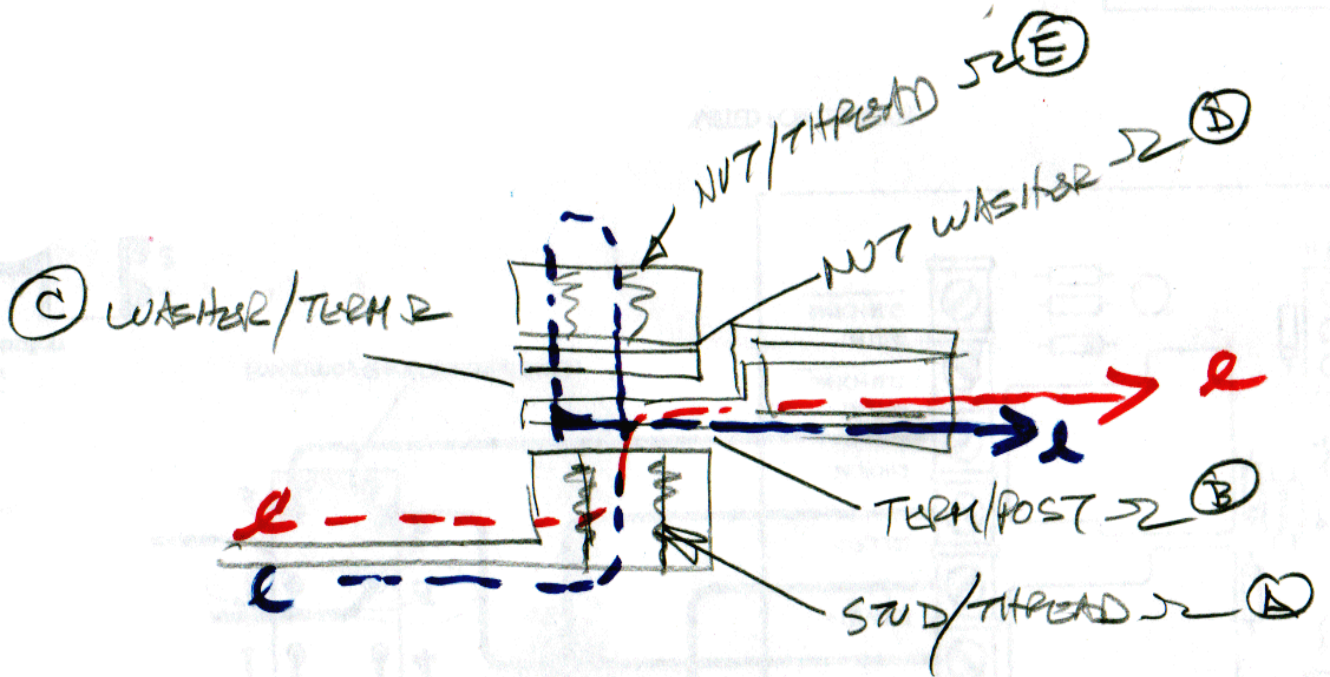 NUT/THREAD Ω E
NUT WASHER Ω D
C WASHER/TERM Ω
e
e
e
TERM/POST Ω B
e
STUD/THREAD Ω A